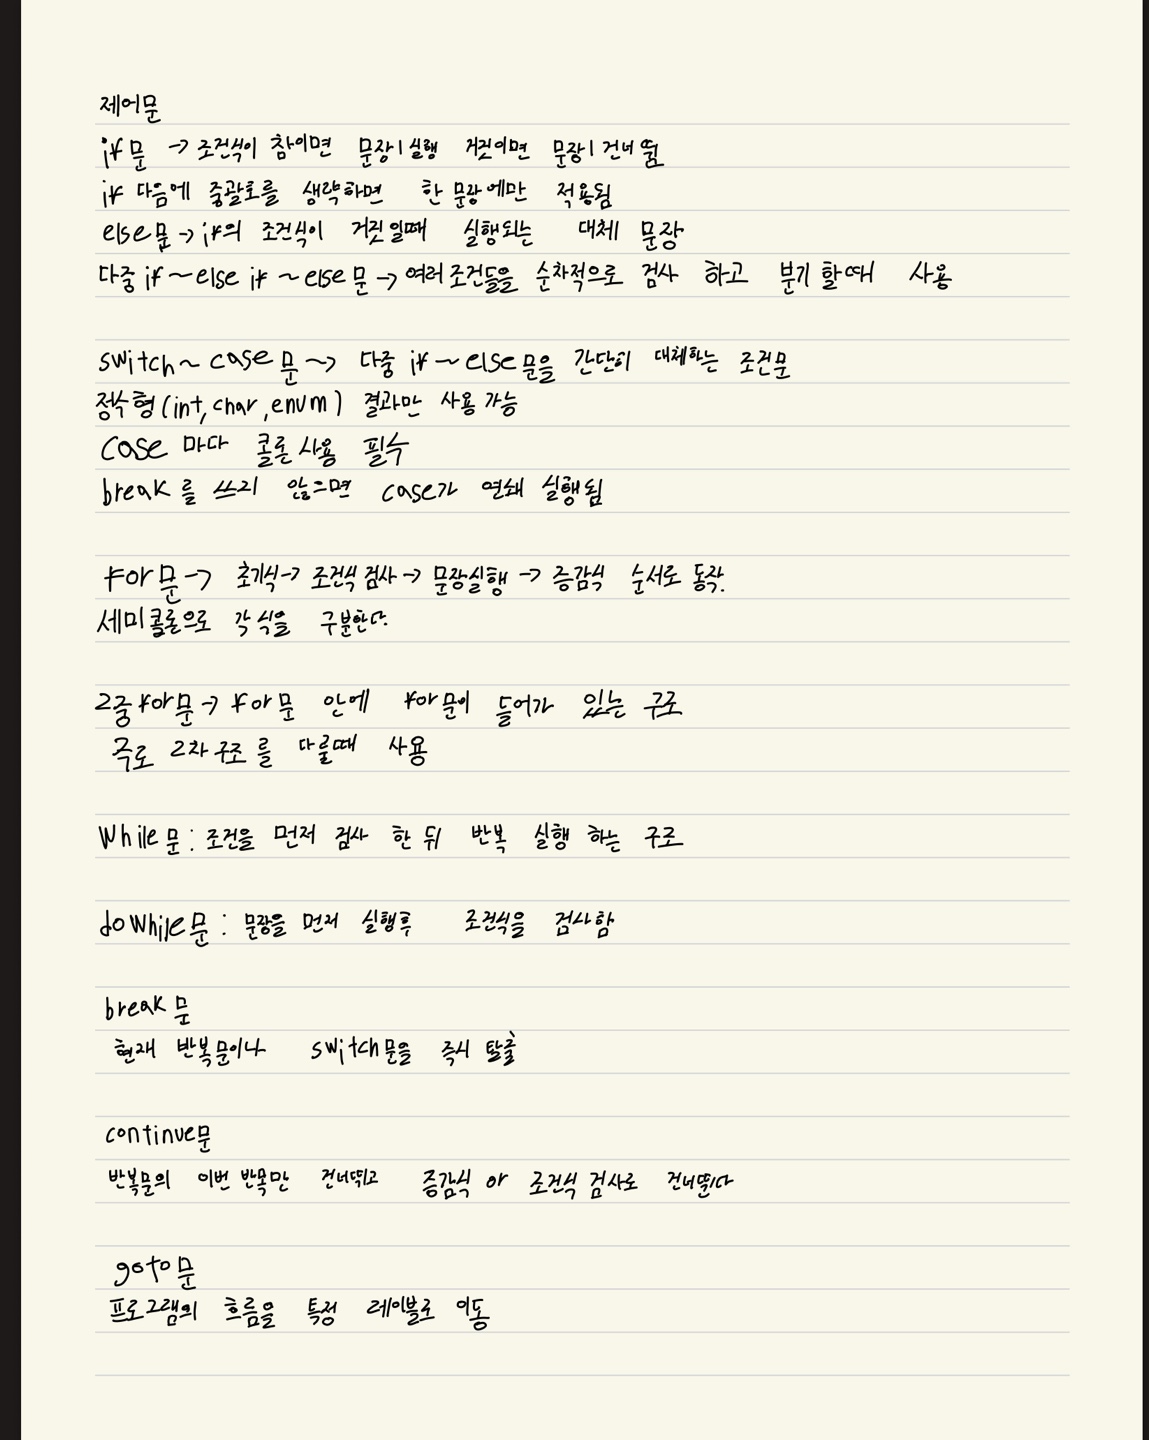 제어문
if문 -> 조건식이 참이면 문장1실행 거짓이면 문장1 건너뜀
if 다음에 중괄호를 생략하면 한 문장에만 적용됨
else문 -> if의 조건식이 거짓일때 실행되는 대체 문장
다중 if ~ else if ~ else문 -> 여러 조건들을 순차적으로 검사 하고 분기 할때 사용
switch ~ case 문 ~> 다중 if ~ else문을 간단히 대체하는 조건문
정수형(int, char, enum) 결과만 사용 가능
case 마다 콜론 사용 필수
break를 쓰지 않으면 case가 연쇄 실행됨
for문 -> 초기식 -> 조건식 검사 -> 문장실행 -> 증감식 순서로 동작.
세미콜론으로 각 식을 구분한다.
2중 for문 -> for문 안에 for문이 들어가 있는 구조
주로 2차 구조를 다룰때 사용
While문 : 조건을 먼저 검사 한 뒤 반복 실행 하는 구조
do While문 : 문장을 먼저 실행후 조건식을 검사함
break 문
현재 반복문이나 switch문을 즉시 탈출
continue문
반복문의 이번 반복만 건너뛰고 증감식 or 조건식 검사로 건너뛴다
goto문
프로그램의 흐름을 특정 레이블로 이동